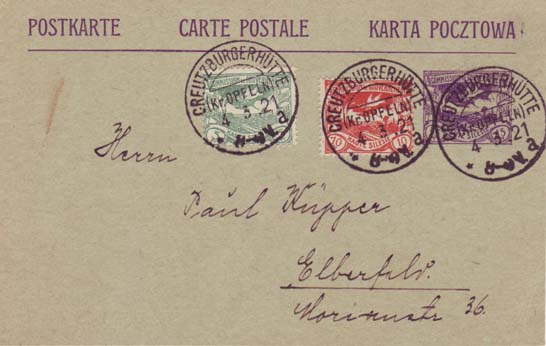 POSTKARTE CARTE POSTALE KARTA POCZTOWA
CREUTZBURGERHÜTTE
(Kr. OPPELN)
4 3.21
a
CREUTZBURGERHÜTTE
(Kr. OPPELN)
4 3.21
a
CREUTZBURGERHÜTTE
(Kr. OPPELN)
4 3.21
a
10 10
HAUTE SILESIE
Herrn
Paul Küpper
Elberfeld.
Morianstr 36.